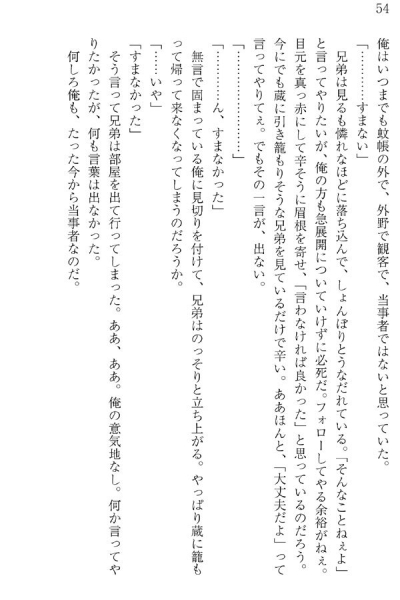 54
俺はいつまでも蚊帳の外で、外野で観客で、当事者ではないと思っていた。
「…………すまない」
兄弟は見るも憐れなほどに落ち込んで、しょんぼりとうなだれている。「そんなことねぇよ」
と言ってやりたいが、俺の方も急展開についていけずに必死だ。フォローしてやる余裕がねぇ。
目元を真っ赤にして辛そうに眉根を寄せ、「言わなければ良かった」と思っているのだろう。
今にでも蔵に引き籠もりそうな兄弟を見ているだけで辛い。ああほんと、「大丈夫だよ」って
言ってやりてぇ。でもその一言が、出ない。
「…………………」
「…………ん、すまなかった」
無言で固まっている俺に見切りを付けて、兄弟はのっそりと立ち上がる。やっぱり蔵に籠も
って帰って来なくなってしまうのだろうか。
「……いや」
「すまなかった」
そう言って兄弟は部屋を出て行ってしまった。ああ、ああ。俺の意気地なし。何か言ってや
りたかったが、何も言葉は出なかった。
何しろ俺も、たった今から当事者なのだ。